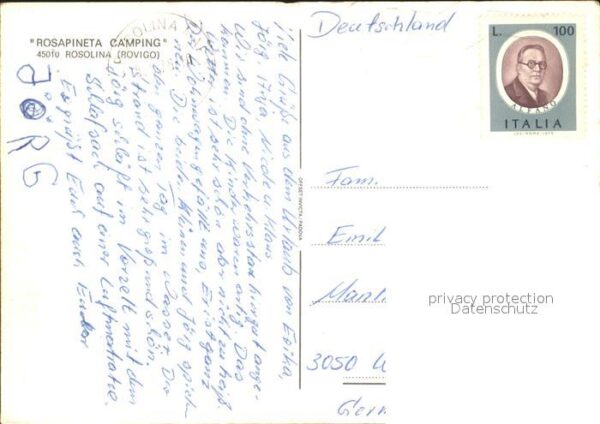 "ROSAPINETA CAMPING"
45010 ROSOLINA (ROVIGO)
Deutschland
L. 100
ALFANO
ITALIA
Viele Grüße aus dem Urlaub von Erika,
Jörg, Nicole u. Klaus
Wir sind ohne Verkehrsstau hingut ange-
kommen. Die Kinder waren artig. Das
Wetter ist sehr schön aber nicht zu heiß.
gefällt uns. Er ist ganz
neu. Die beiden und Jörg spiel-
den ganzen Tag im Wasser. Der
Strand ist sehr groß und schön.
Jörg schläft im Vorzelt mit dem
Schlafsack auf einer Luftmatratze.
Es grüßt Euch auch
JÖRG
OFFSET INVICTA - PADOVA
Fam.
Emil
3050
privacy protection
Datenschutz